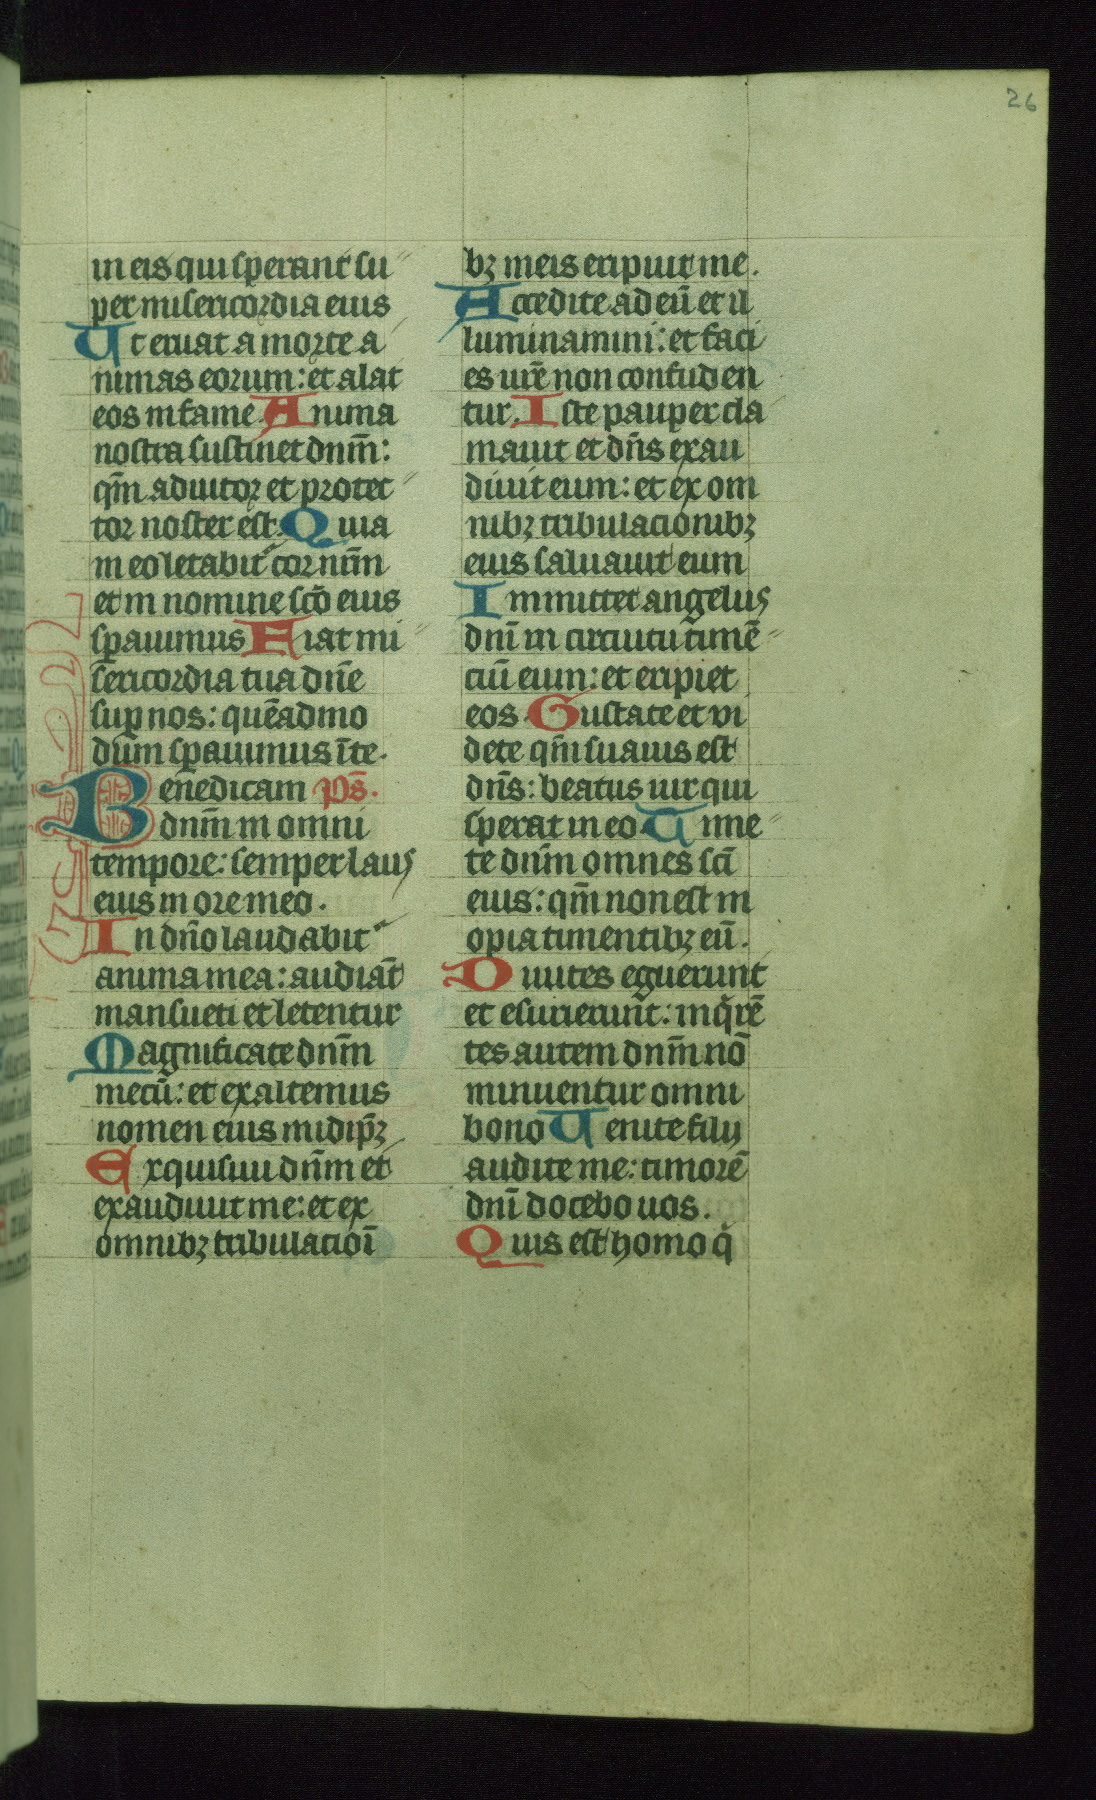 26
in eis qui sperant su
per misericordia eius
Ut eruat a morte a
nimas eorum: et alat
eos in fame. Anima
nostra sustinet dnm̄:
qm̄ adiutor et protec
tor noster est. Quia
in eo letabit᷑ cor nr̄m
et in nomine scō eius
spauimus Fiat mi
sericordia tua dn̄e
sup nos: quēadmo
dum spauimus ī te.
Benedicam ps̄.
dnm̄ in omni
tempore: semper laus
eius in ore meo.
In dn̄o laudabit᷑
anima mea: audiāt
mansueti et letentur
Magnificate dnm̄
mecū: et exaltemus
nomen eius in idip̄ꝫ
Exquisiui dn̄m et
exaudiuit me: et ex
omnibꝫ tribulacioī
bꝫ meis eripuit me.
Accedite ad eū et il
luminamini: et faci
es ur̄e non confuden
tur. Iste pauper cla
mauit et dn̄s exau
diuit eum: et ex om
nibꝫ tribulacionibꝫ
eius saluauit eum
Inmittet angelus
dnī in circuitu timē
ciū eum: et eripiet
eos. Gustate et vi
dete qm̄ suauis est
dn̄s: beatus uir qui
sperat in eo. Time
te dnm̄ omnes scī
eius: qm̄ non est in
opia timentibꝫ eū.
Diuites eguerunt
et esurierunt: inq̄rē
tes autem dnm̄ nō
minuentur omni
bono Uenite filij
audite me: timorē
dnī docebo uos.
Quis est homo q̄